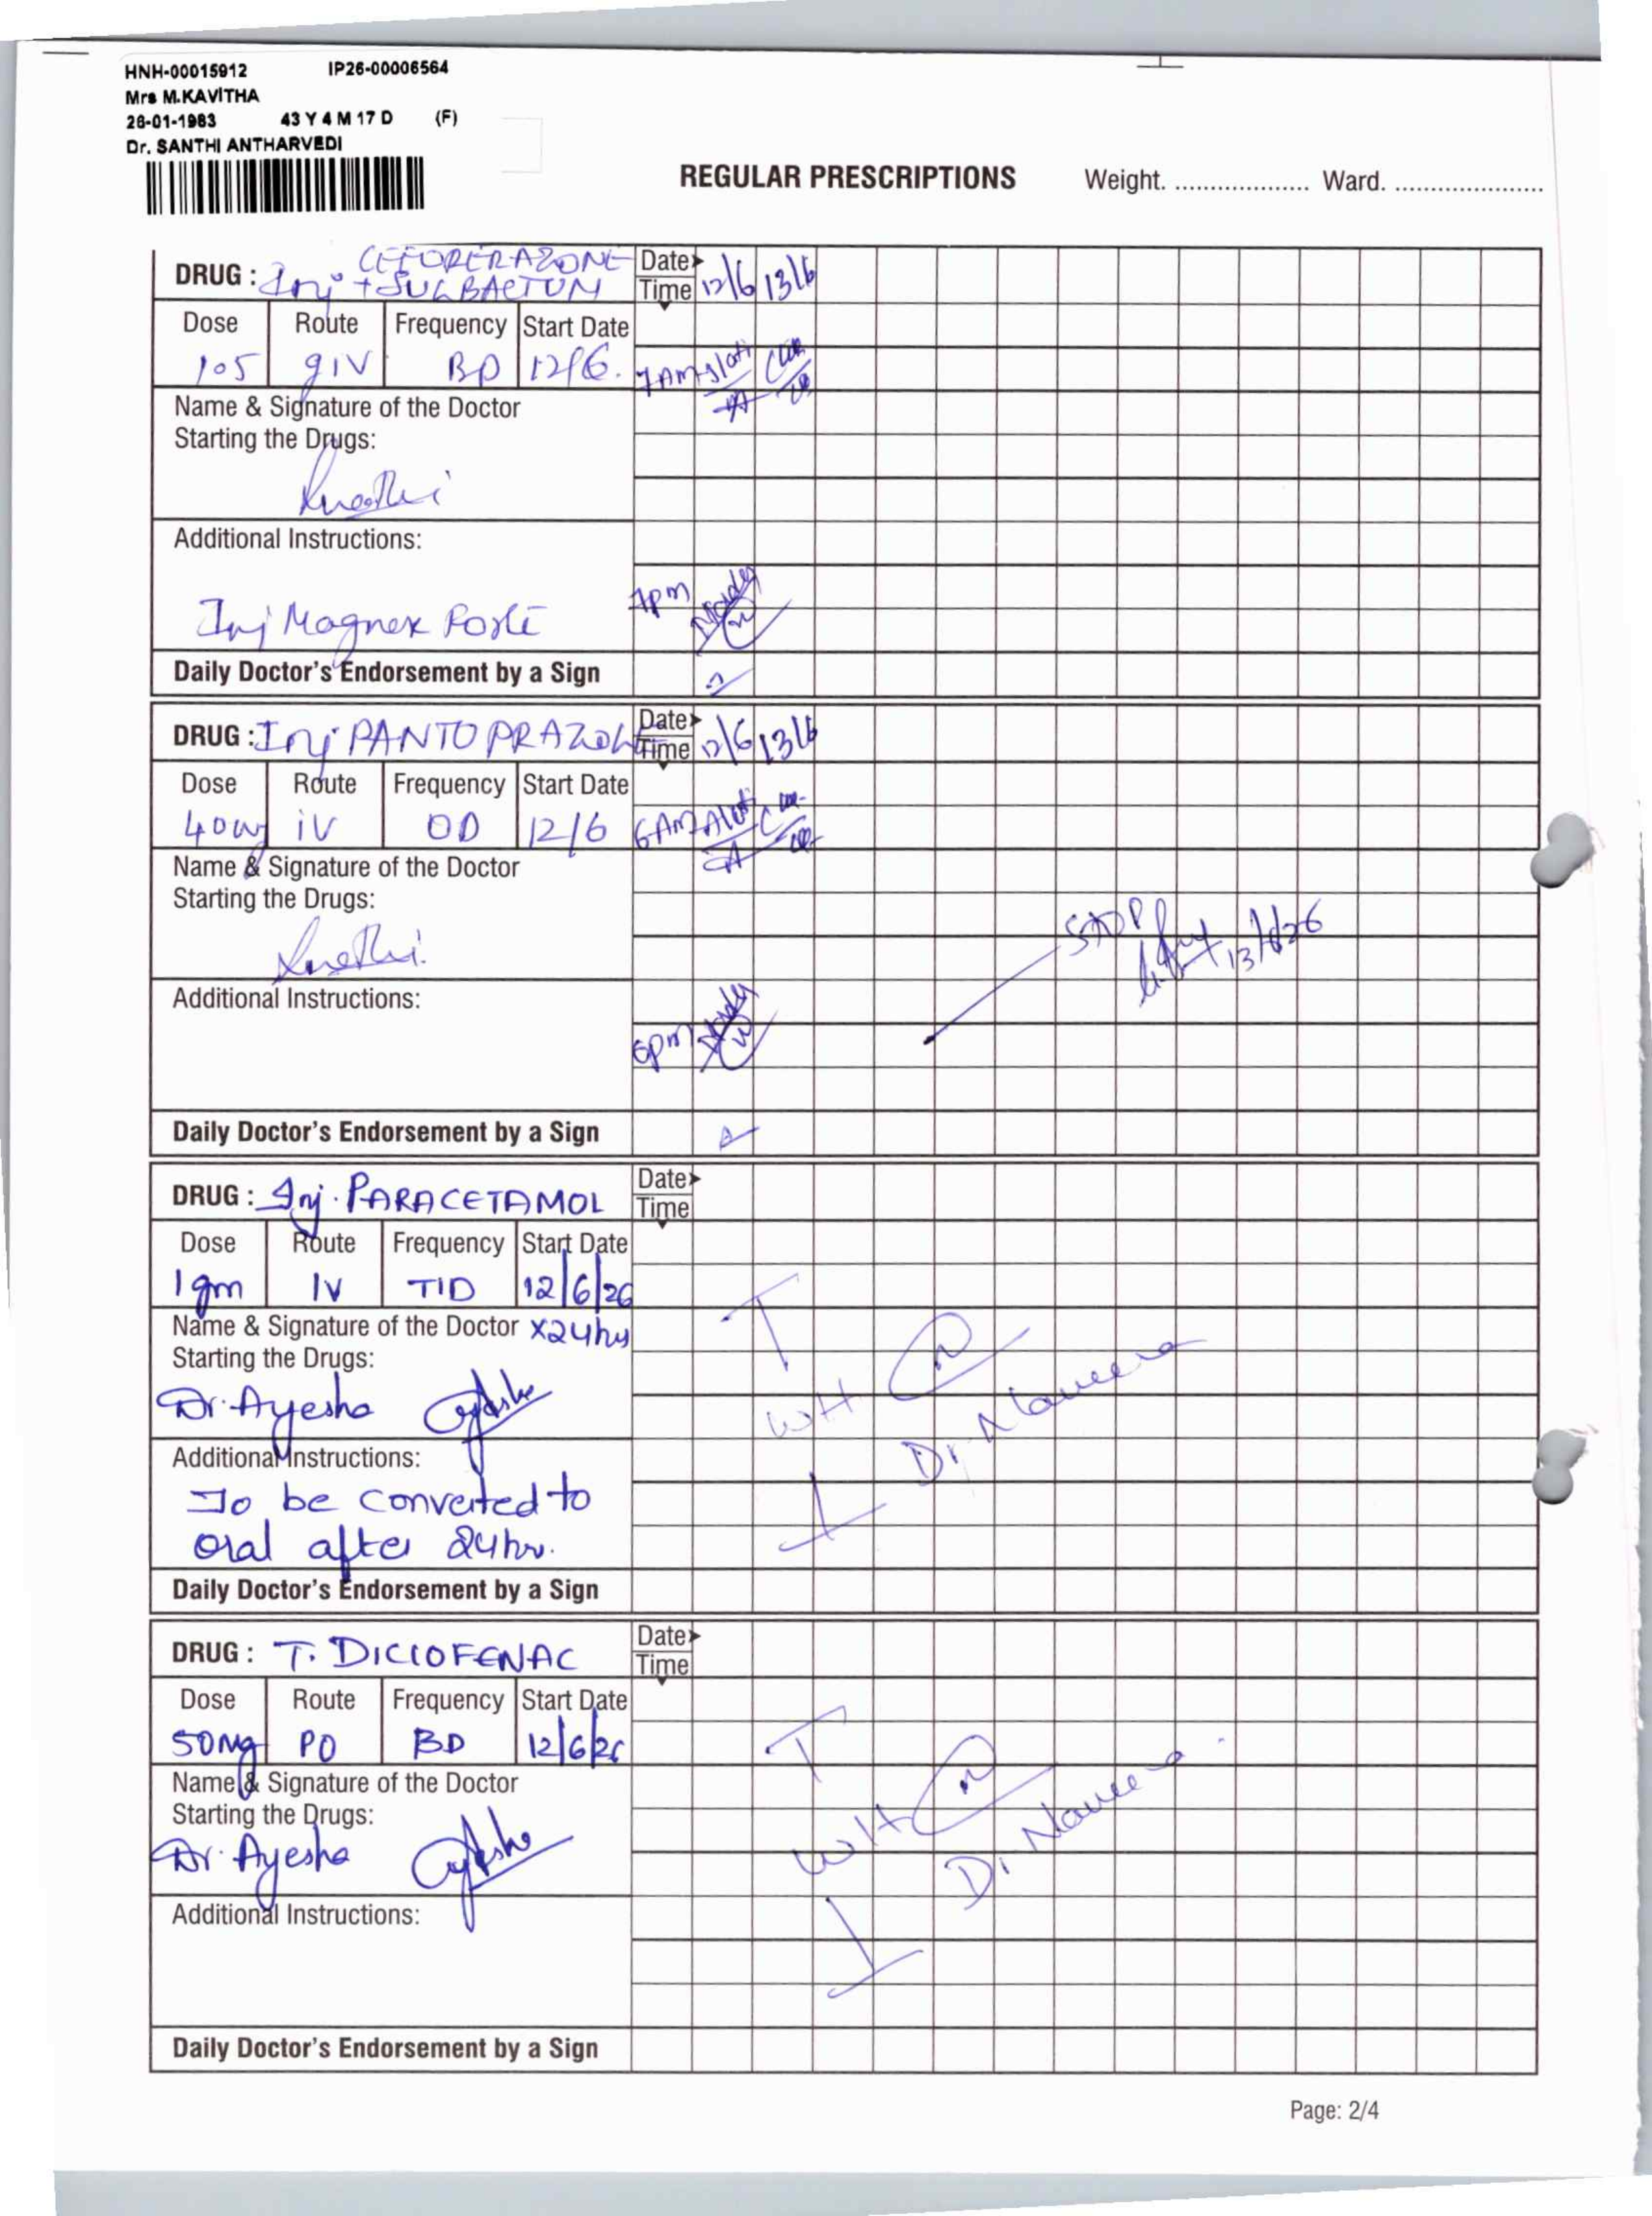 HNH-00015912 IP26-00006564
Mrs M.KAVITHA
26-01-1983 43 Y 4 M 17 D (F)
Dr. SANTHI ANTHARVEDI
REGULAR PRESCRIPTIONS Weight. .................. Ward. ....................
CEFOPERAZONE
DRUG : Inj + SULBACTUM Date Time 12/6 13/6
Dose Route Frequency Start Date
105 gIV BD 12/6. 7AM
Name & Signature of the Doctor
Starting the Drugs:
Additional Instructions:
Inj Magnex Forte 7pm
Daily Doctor's Endorsement by a Sign
DRUG : Inj PANTOPRAZOLE Date Time 12/6 13/6
Dose Route Frequency Start Date
40mg iV OD 12/6 6AM
Name & Signature of the Doctor
Starting the Drugs:
STOP
13/6/26
Additional Instructions:
6pm
Daily Doctor's Endorsement by a Sign
DRUG : Inj. PARACETAMOL Date Time
Dose Route Frequency Start Date
1gm IV TID 12/6/26
Name & Signature of the Doctor X24hrs
Starting the Drugs:
Dr. Ayesha
W/H Dr Naveena
Additional Instructions:
To be converted to
oral after 24hr.
Daily Doctor's Endorsement by a Sign
DRUG : T. DICLOFENAC Date Time
Dose Route Frequency Start Date
50Mg PO BD 12/6/26
Name & Signature of the Doctor
Starting the Drugs:
Dr. Ayesha
W/H Dr Naveena
Additional Instructions:
Daily Doctor's Endorsement by a Sign
Page: 2/4